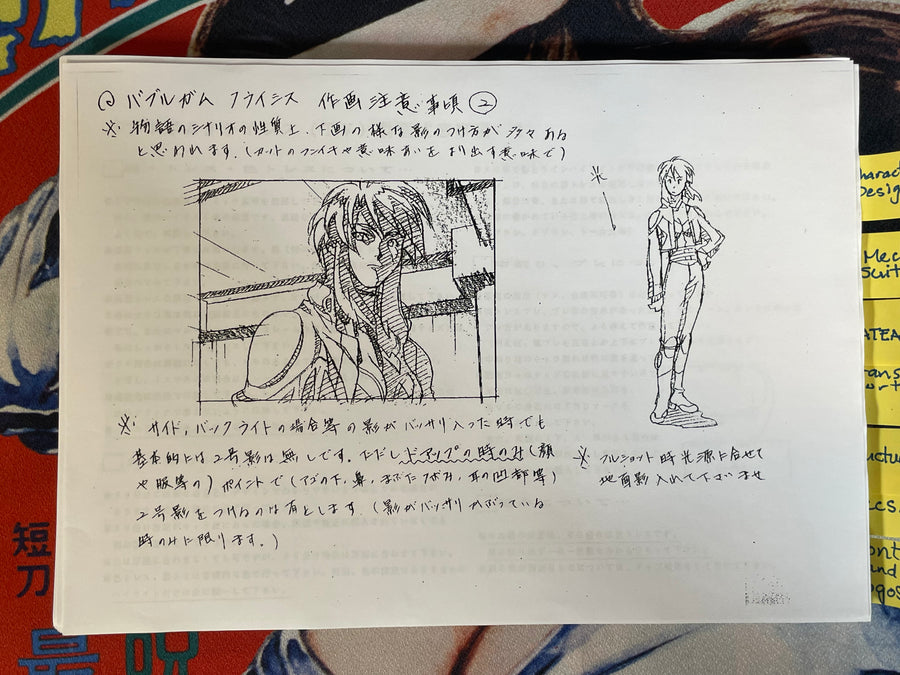 バブルガム クライシス 作画注意事項②
※ 物語のシナリオの性質上、下画の様な影のつけ方が多々ある
と思われます。(カットのフンイキや意味あいをより出す意味で)
※
※ サイド,バックライトの場合等の影がバッサリ入った時でも
基本的には2号影は無しです。ただしドアップの時のみ(顔
や服等の)ポイントで(アゴの下,鼻,まぶたクボみ,耳の凹部等)
2号影をつけるのは有とします。(影がバッサリかぶっている
時のみに限ります。)
※ フルショット時光源に合せて
地面影入れて下さいませ
Charac
Design
Mec
Suit
rans
port
ont
and
ogos
短刀
最 呪